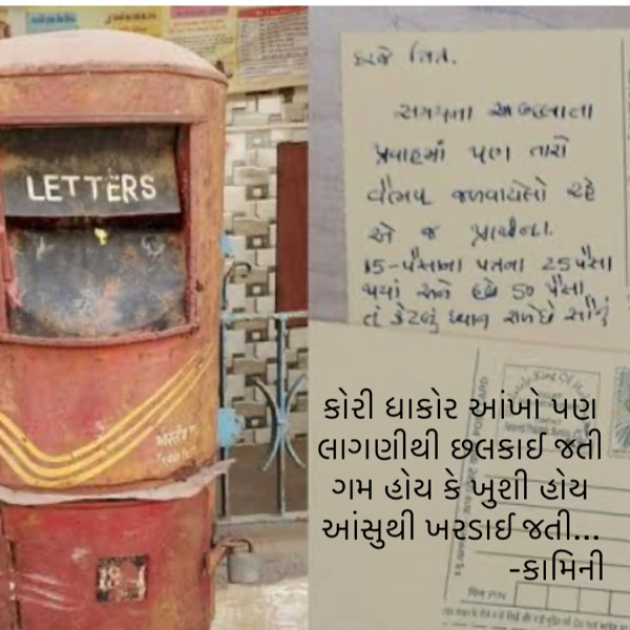 LETTERS
સમયના આ બદલાતા
પ્રવાહમાં પણ તારો
વૈભવ જળવાયેલો રહે
એ જ પ્રાર્થના.
15-પૈસાના પત્રના 25 પૈસા
થયાં અને હવે 50 પૈસા
તું કેટલું ધ્યાન રાખે છે સૌનું
કોરી ધાકોર આંખો પણ
લાગણીથી છલકાઈ જતી
ગમ હોય કે ખુશી હોય
આંસુથી ખરડાઈ જતી...
-કામિની
POST CARD
पिन PIN